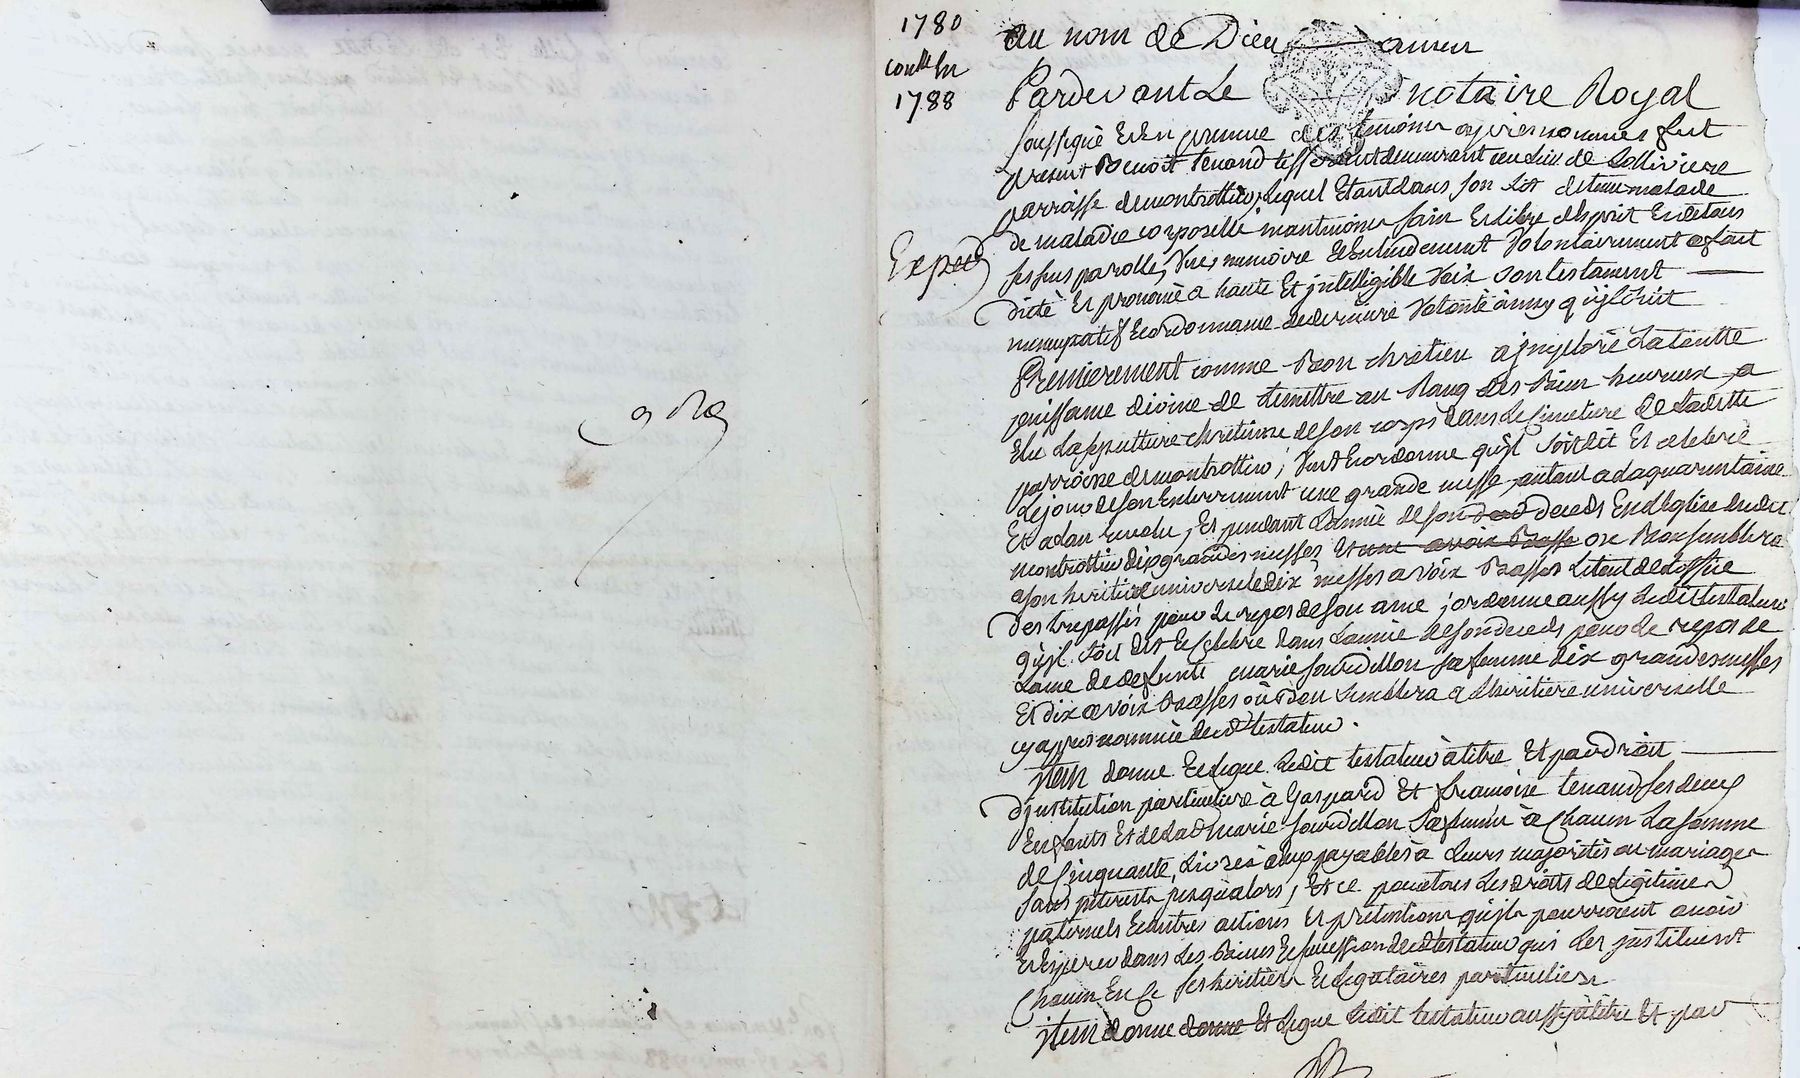 1780
con.lle en
1788
Exped
au nom de Dieu amen
Pardevant Le notaire Royal
soussigné Et En presence des temoins apres nommes fut
present Benoit tenand tisserant demeurant au lieu de
parroisse demontrottier, Lequel Etant dans son lit detenu malade
de maladie corporelle neantmoins sain Et Libre desprit Et de tous
ses sens parolle, Vue, memoire Et Entendement Volontairement a fait
dicté Et prononcé a haute Et jntelligible Voix son testament
nuncupatif Et ordonnance de derniere Volonté ainsy qu'jl suit
Premierement comme Bon chretien a jmploré La toutte
puissance divine de le mettre au Rang des Bien heureux, a
Elu La sepulture chretienne de son corps dans Le Cimetiere de Laditte
parroisse de montrottier, Veut Et ordonne qu'jl soit dit Et celebré
Le jour de son Enterrement une grande messe, autant a la quarantaine
Et a l'an revolu, Et pendant L'année de son deceds En L'Eglise dudit
montrottier dix grandes messes Et une a voix Basse ou Bon semblera
a son heritiere universelle dix messes a voix Basses Le tout de L'office
des trepassés pour Le repos de son ame; jordonne aussy Ledit testateur
qu'jl soit dit Et Celebré dans L'année de son deceds pour Le repos de
Lame de defunte marie sa femme dix grandes messes
Et dix a voix Basses où Bon semblera a Lheritiere universelle
cy apres nommée dudt testateur.
jtem donne Et Legue Ledit testateur à titre Et par droit
d'jnstitution particuliere à Gaspard Et francoise tenand ses deux
Enfants Et de Lad. marie sa femme à Chacun La somme
de Cinquante Livres a Eux payables à Leurs majorités ou mariages
sans jnterest jusqualors, Et ce pour tous Les droits de Legitimes
paternels Et autres actions Et pretentions qu'jls pourroient avoir
Et Esperer dans Les Biens Et succession dudt testateur qui Les jnstituent
Chacun En Ce ses heritiers Et Legataires particuliers
jtem donne donne Et Legue Ledit testateur aussy à titre Et par